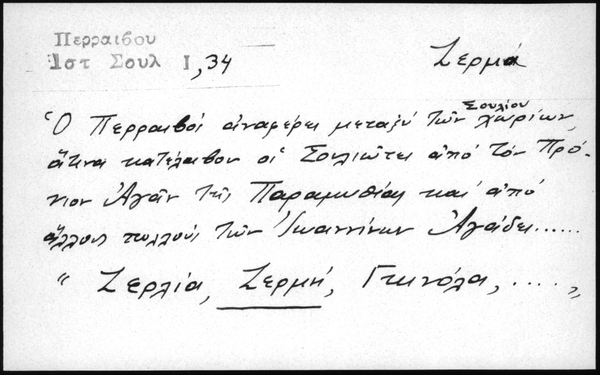 Περραιβου
Ιστ Σουλ Ι, 34
Ζερμά
Σουλίου
Ὁ Περραιβός ἀναφέρει μεταξύ τῶν χωρίων,
ἅτινα κατέλαβον οἱ Σουλιῶται ἀπό τόν Πρό-
νιον Ἀγᾶν τῆς Παραμυθίας καί ἀπό
ἄλλους πολλούς τῶν Ἰωαννίνων Ἀγάδες......
"Ζερλία, Ζερμή, Γκινόλα, ....."